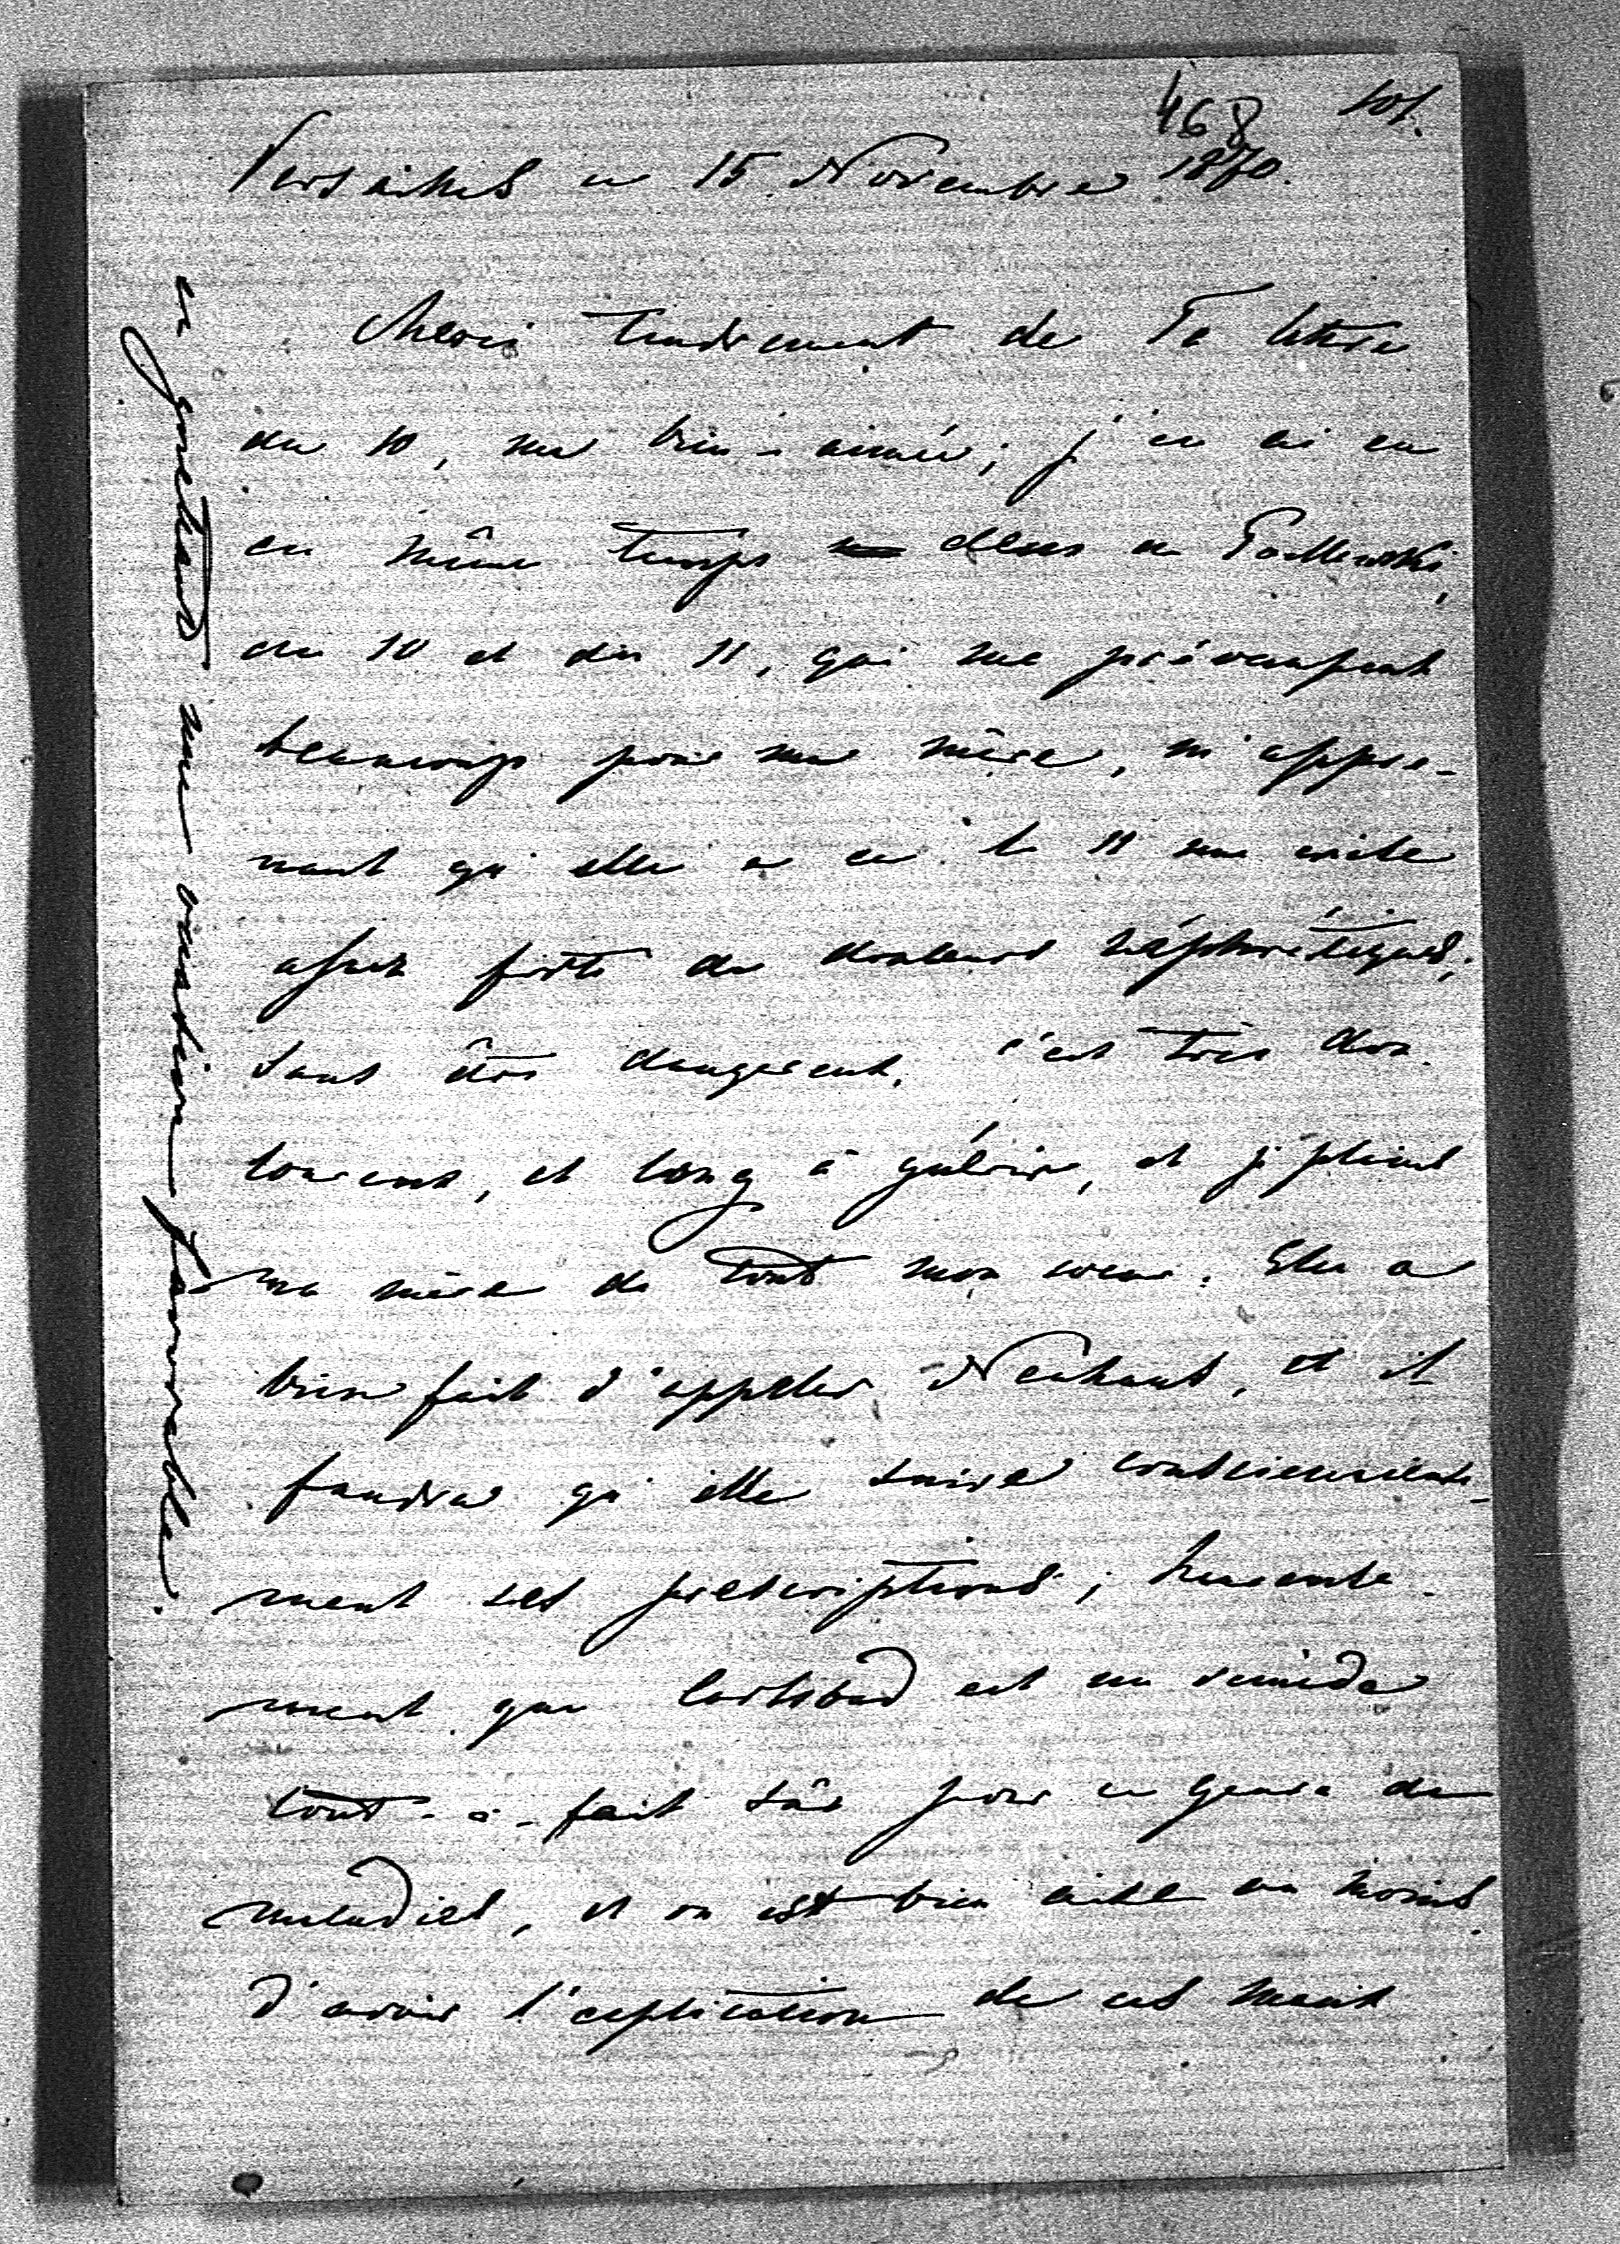 468 101.
Versailles ce 15 Novembre 1870.
Merci tendrement de Ta lettre
du 10, ma bien-aimée; j'en ai eu
en même temps deux de
du 10 et du 11, qui me
beaucoup pour ma mère, m'appre-
nant qu'elle a eu le 11 une crise
assez forte de douleurs néphrétiques;
sans être dangereux, c'est très dou-
loureux, et long à guérir, et je plains
ma mère de tout mon coeur. Elle a
bien fait d'appeler Neuhaus, et il
faudra qu'elle suive consciencieuse-
ment ses prescriptions; heureuse-
ment que Carlsbad est un remède
tout-à-fait sûr pour ce genre de
maladies, et on est bien aise au moins
d'avoir l'explication de ces maux
en guettant une occasion favorable.